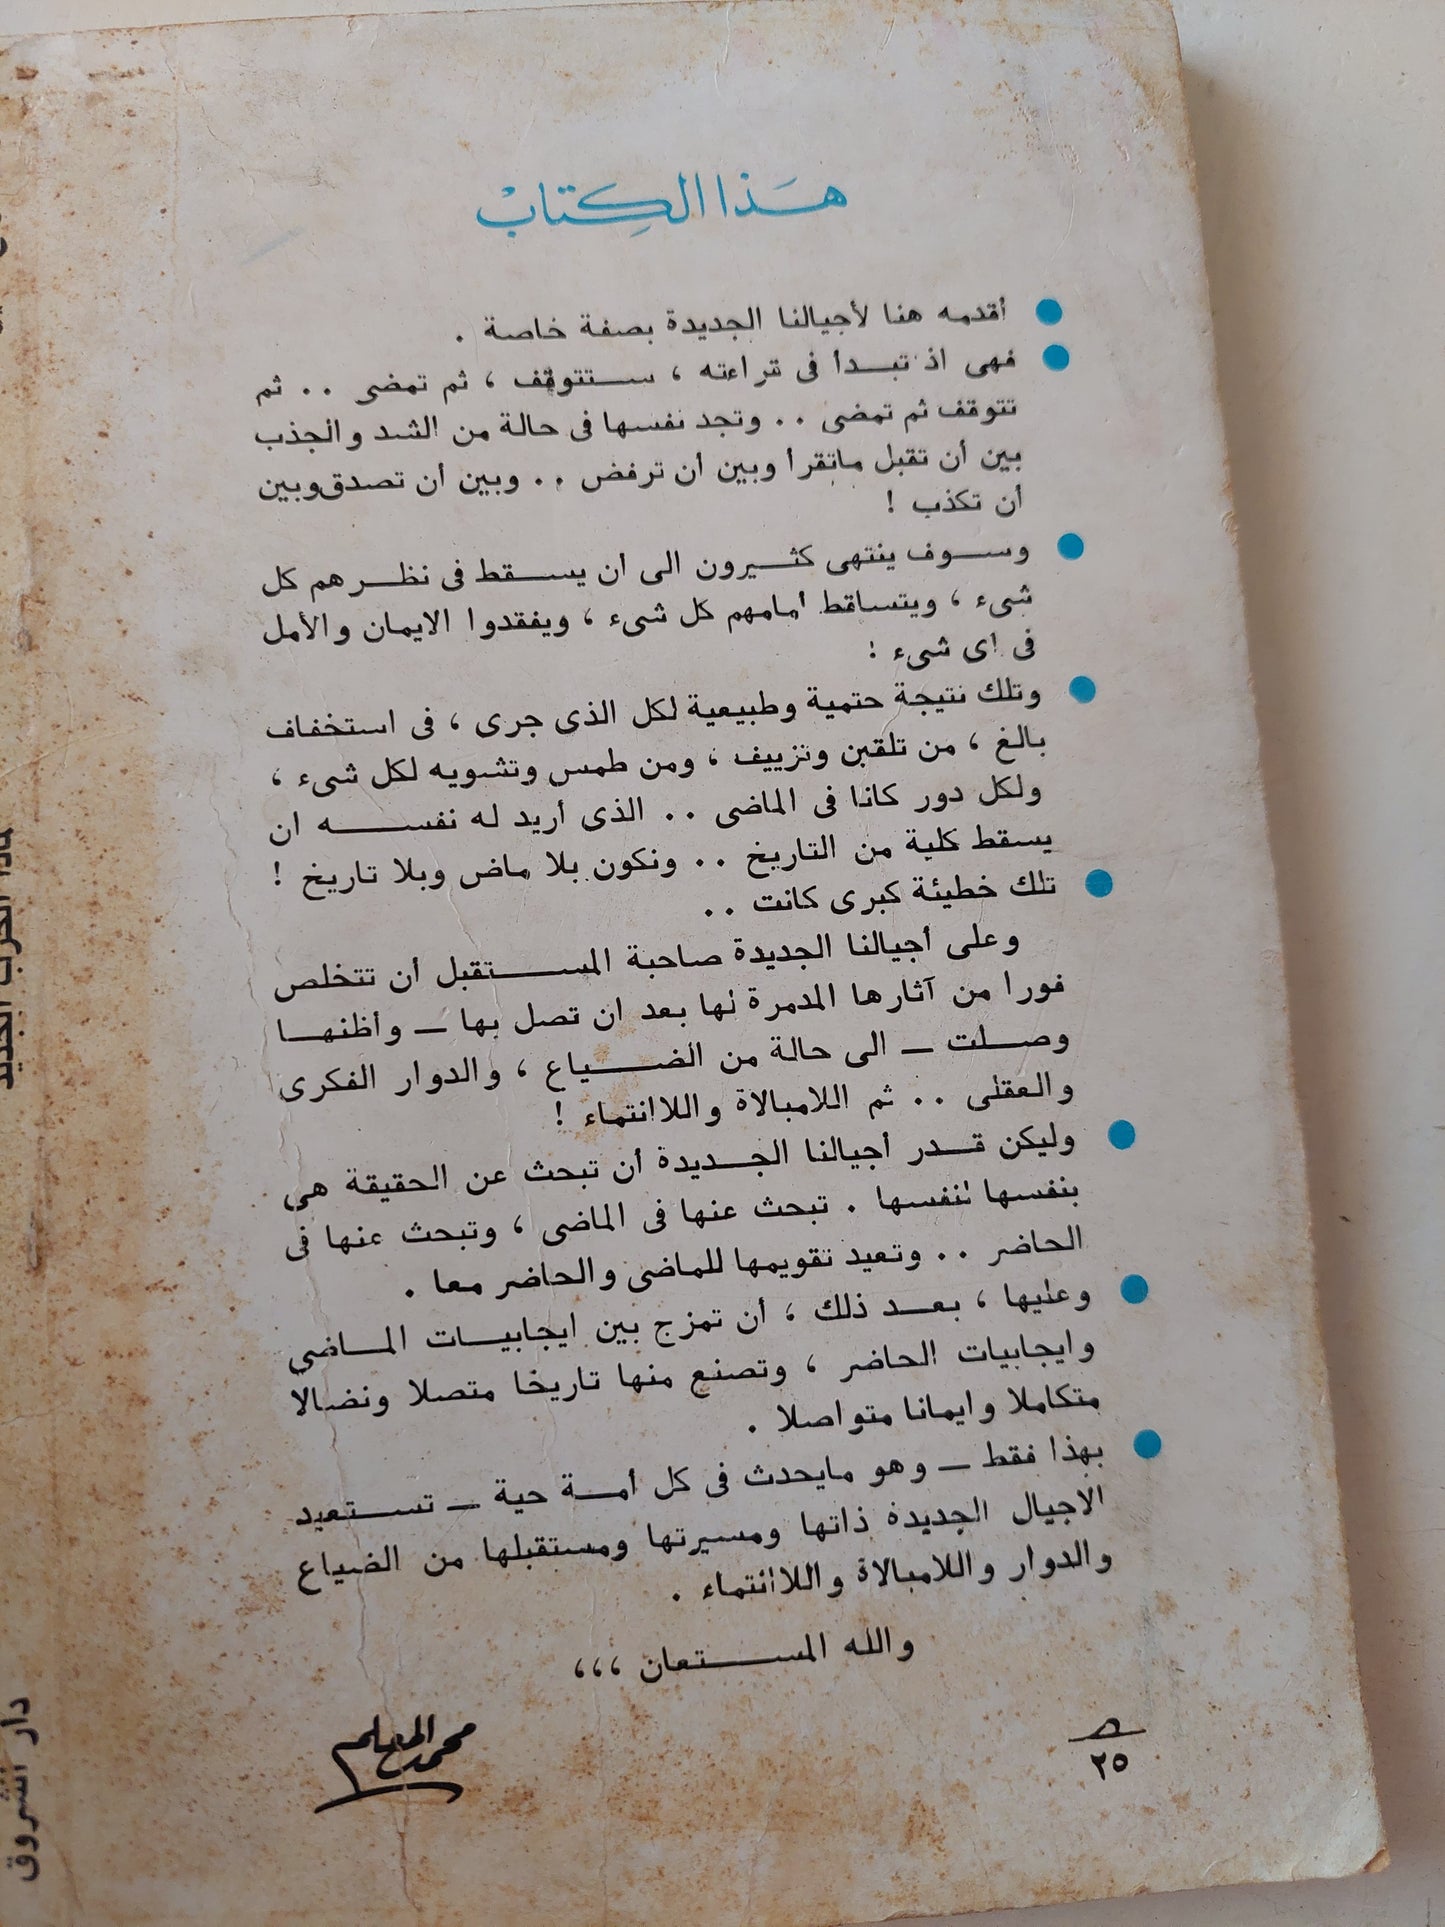 هَذا الكِتابْ
أقدمه هنا لأجيالنا الجديدة بصفة خاصة .
فهى اذ تبدأ فى قراءته ، ستتوقف ، ثم تمضى . . ثم
تتوقف ثم تمضى . . وتجد نفسها فى حالة من الشد والجذب
بين أن تقبل ماتقرأ وبين أن ترفض . . وبين أن تصدق وبين
أن تكذب !
وسوف ينتهى كثيرون الى أن يسقط فى نظرهم كل
شىء ، ويتساقط أمامهم كل شىء ، ويفقدوا الايمان والأمل
فى أى شىء !
وتلك نتيجة حتمية وطبيعية لكل الذى جرى ، فى استخفاف
بالغ ، من تلقين وتزييف ، ومن طمس وتشويه لكل شىء ،
ولكل دور كانا فى الماضى . . الذى أريد له نفسه ان
يسقط كلية من التاريخ . . ونكون بلا ماض وبلا تاريخ !
تلك خطيئة كبرى كانت . .
وعلى أجيالنا الجديدة صاحبة المستقبل أن تتخلص
فورا من آثارها المدمرة لها بعد ان تصل بها — وأظنها
وصلت — الى حالة من الضياع ، والدوار الفكرى
والعقلى . . ثم اللامبالاة واللاانتماء !
وليكن قدر أجيالنا الجديدة أن تبحث عن الحقيقة هى
بنفسها لنفسها . تبحث عنها فى الماضى ، وتبحث عنها فى
الحاضر . . وتعيد تقويمها للماضى والحاضر معا .
وعليها ، بعد ذلك ، أن تمزج بين ايجابيات الماضى
وايجابيات الحاضر ، وتصنع منها تاريخا متصلا ونضالا
متكاملا وايمانا متواصلا .
بهذا فقط — وهو مايحدث فى كل أمة حية — تستعيد
الاجيال الجديدة ذاتها ومسيرتها ومستقبلها من الضياع
والدوار واللامبالاة واللاانتماء .
والله المستعان ،،،
محمد المعلم
٢٥
الحرب الجديد
دار الشروق